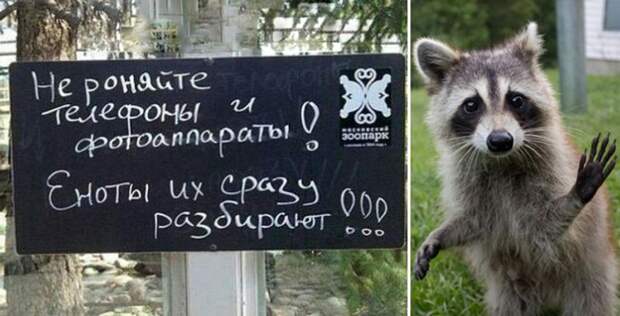 Не роняйте
телефоны и
фотоаппараты!
Еноты их сразу
разбирают!!!
московский
зоопарк